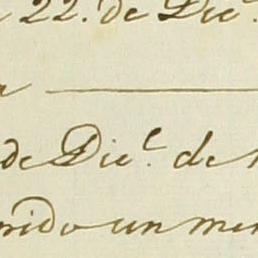 22. de Dic.
de Dic.e de
rido un me